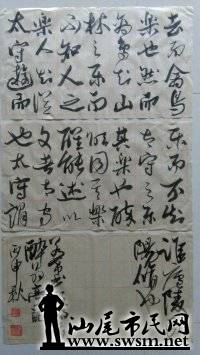 去而禽鸟
樂也然而
禽鸟知山
林之乐而
不知人之
樂人知從
太守遊而
樂而不知
太守之樂
其樂也醉
能同其樂
醒能述以
文者太守
也太守謂
誰廬陵
歐陽修也
醉翁亭記
丙申秋
汕尾市民网
www.swsm.net